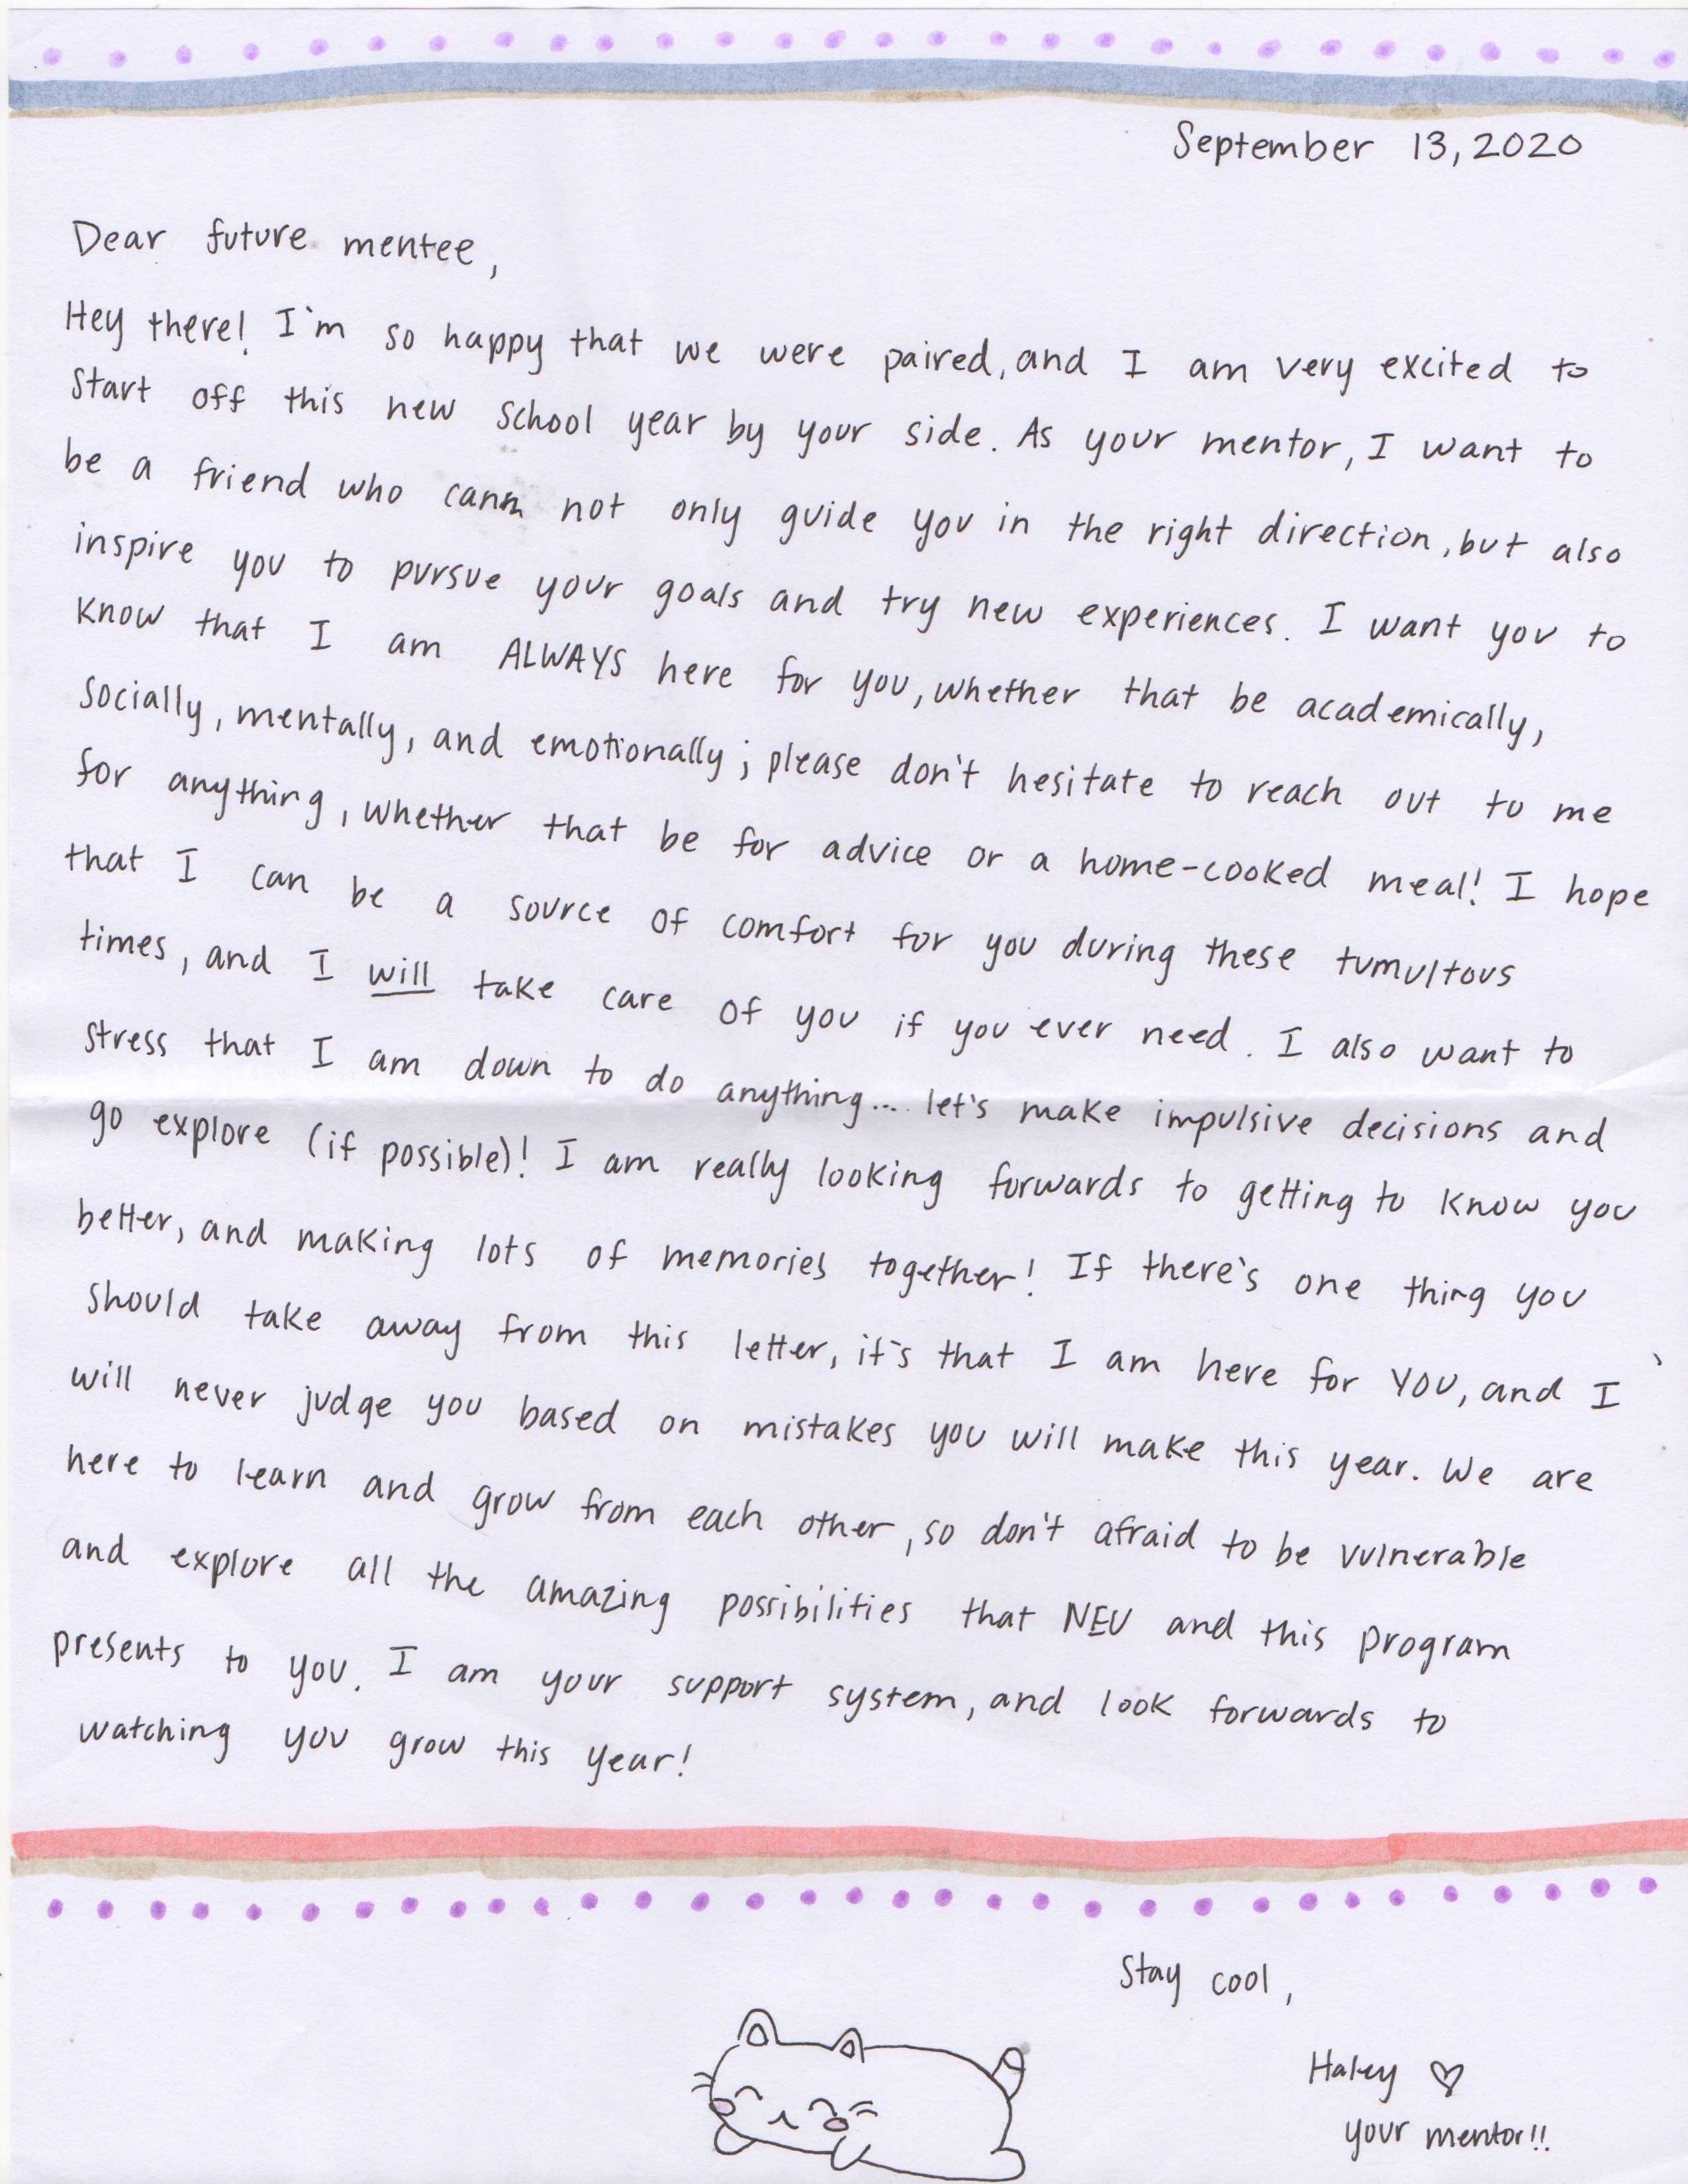 September 13, 2020
Dear future mentee,
Hey there! I'm so happy that we were paired, and I am very excited to
start off this new school year by your side. As your mentor, I want to
be a friend who can not only guide you in the right direction, but also
inspire you to pursue your goals and try new experiences. I want you to
know that I am ALWAYS here for you, whether that be academically,
socially, mentally, and emotionally; please don't hesitate to reach out to me
for anything, whether that be for advice or a home-cooked meal! I hope
that I can be a source of comfort for you during these tumultous
times, and I will take care of you if you ever need. I also want to
stress that I am down to do anything... let's make impulsive decisions and
go explore (if possible)! I am really looking forwards to getting to know you
better, and making lots of memories together! If there's one thing you
should take away from this letter, it's that I am here for YOU, and I
will never judge you based on mistakes you will make this year. We are
here to learn and grow from each other, so don't afraid to be vulnerable
and explore all the amazing possibilities that NEU and this program
presents to you. I am your support system, and look forwards to
watching you grow this year!
Stay cool,
Haley ♡
your mentor!!